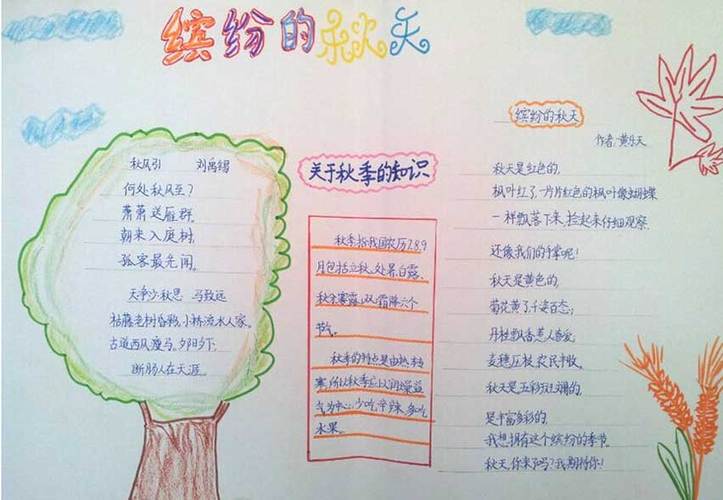 缤纷的秋天
秋风引 刘禹锡
何处秋风至?
萧萧送雁群。
朝来入庭树,
孤客最先闻。
天净沙·秋思 马致远
枯藤老树昏鸦,小桥流水人家。
古道西风瘦马。夕阳夕下,
断肠人在天涯。
关于秋季的知识
秋季指我国农历7.8.9
月包括立秋、处暑、白露、
秋分、寒露、霜降六个
节气。
秋季的特点是由热转
寒,所以秋季应以润燥益
气为中心,少吃辛辣,多吃
水果。
缤纷的秋天
作者:黄乐天
秋天是红色的,
枫叶红了,一片片红色的枫叶像蝴蝶
一样飘落下来,捡起来仔细观察
还像我们的手掌呢!
秋天是黄色的,
菊花黄了,千姿百态;
丹桂飘香惹人喜爱;
麦穗压枝,农民丰收。
秋天是五彩斑斓的,
是丰富多彩的。
我想拥有这个缤纷的季节。
秋天,你来了吗?我期待你!